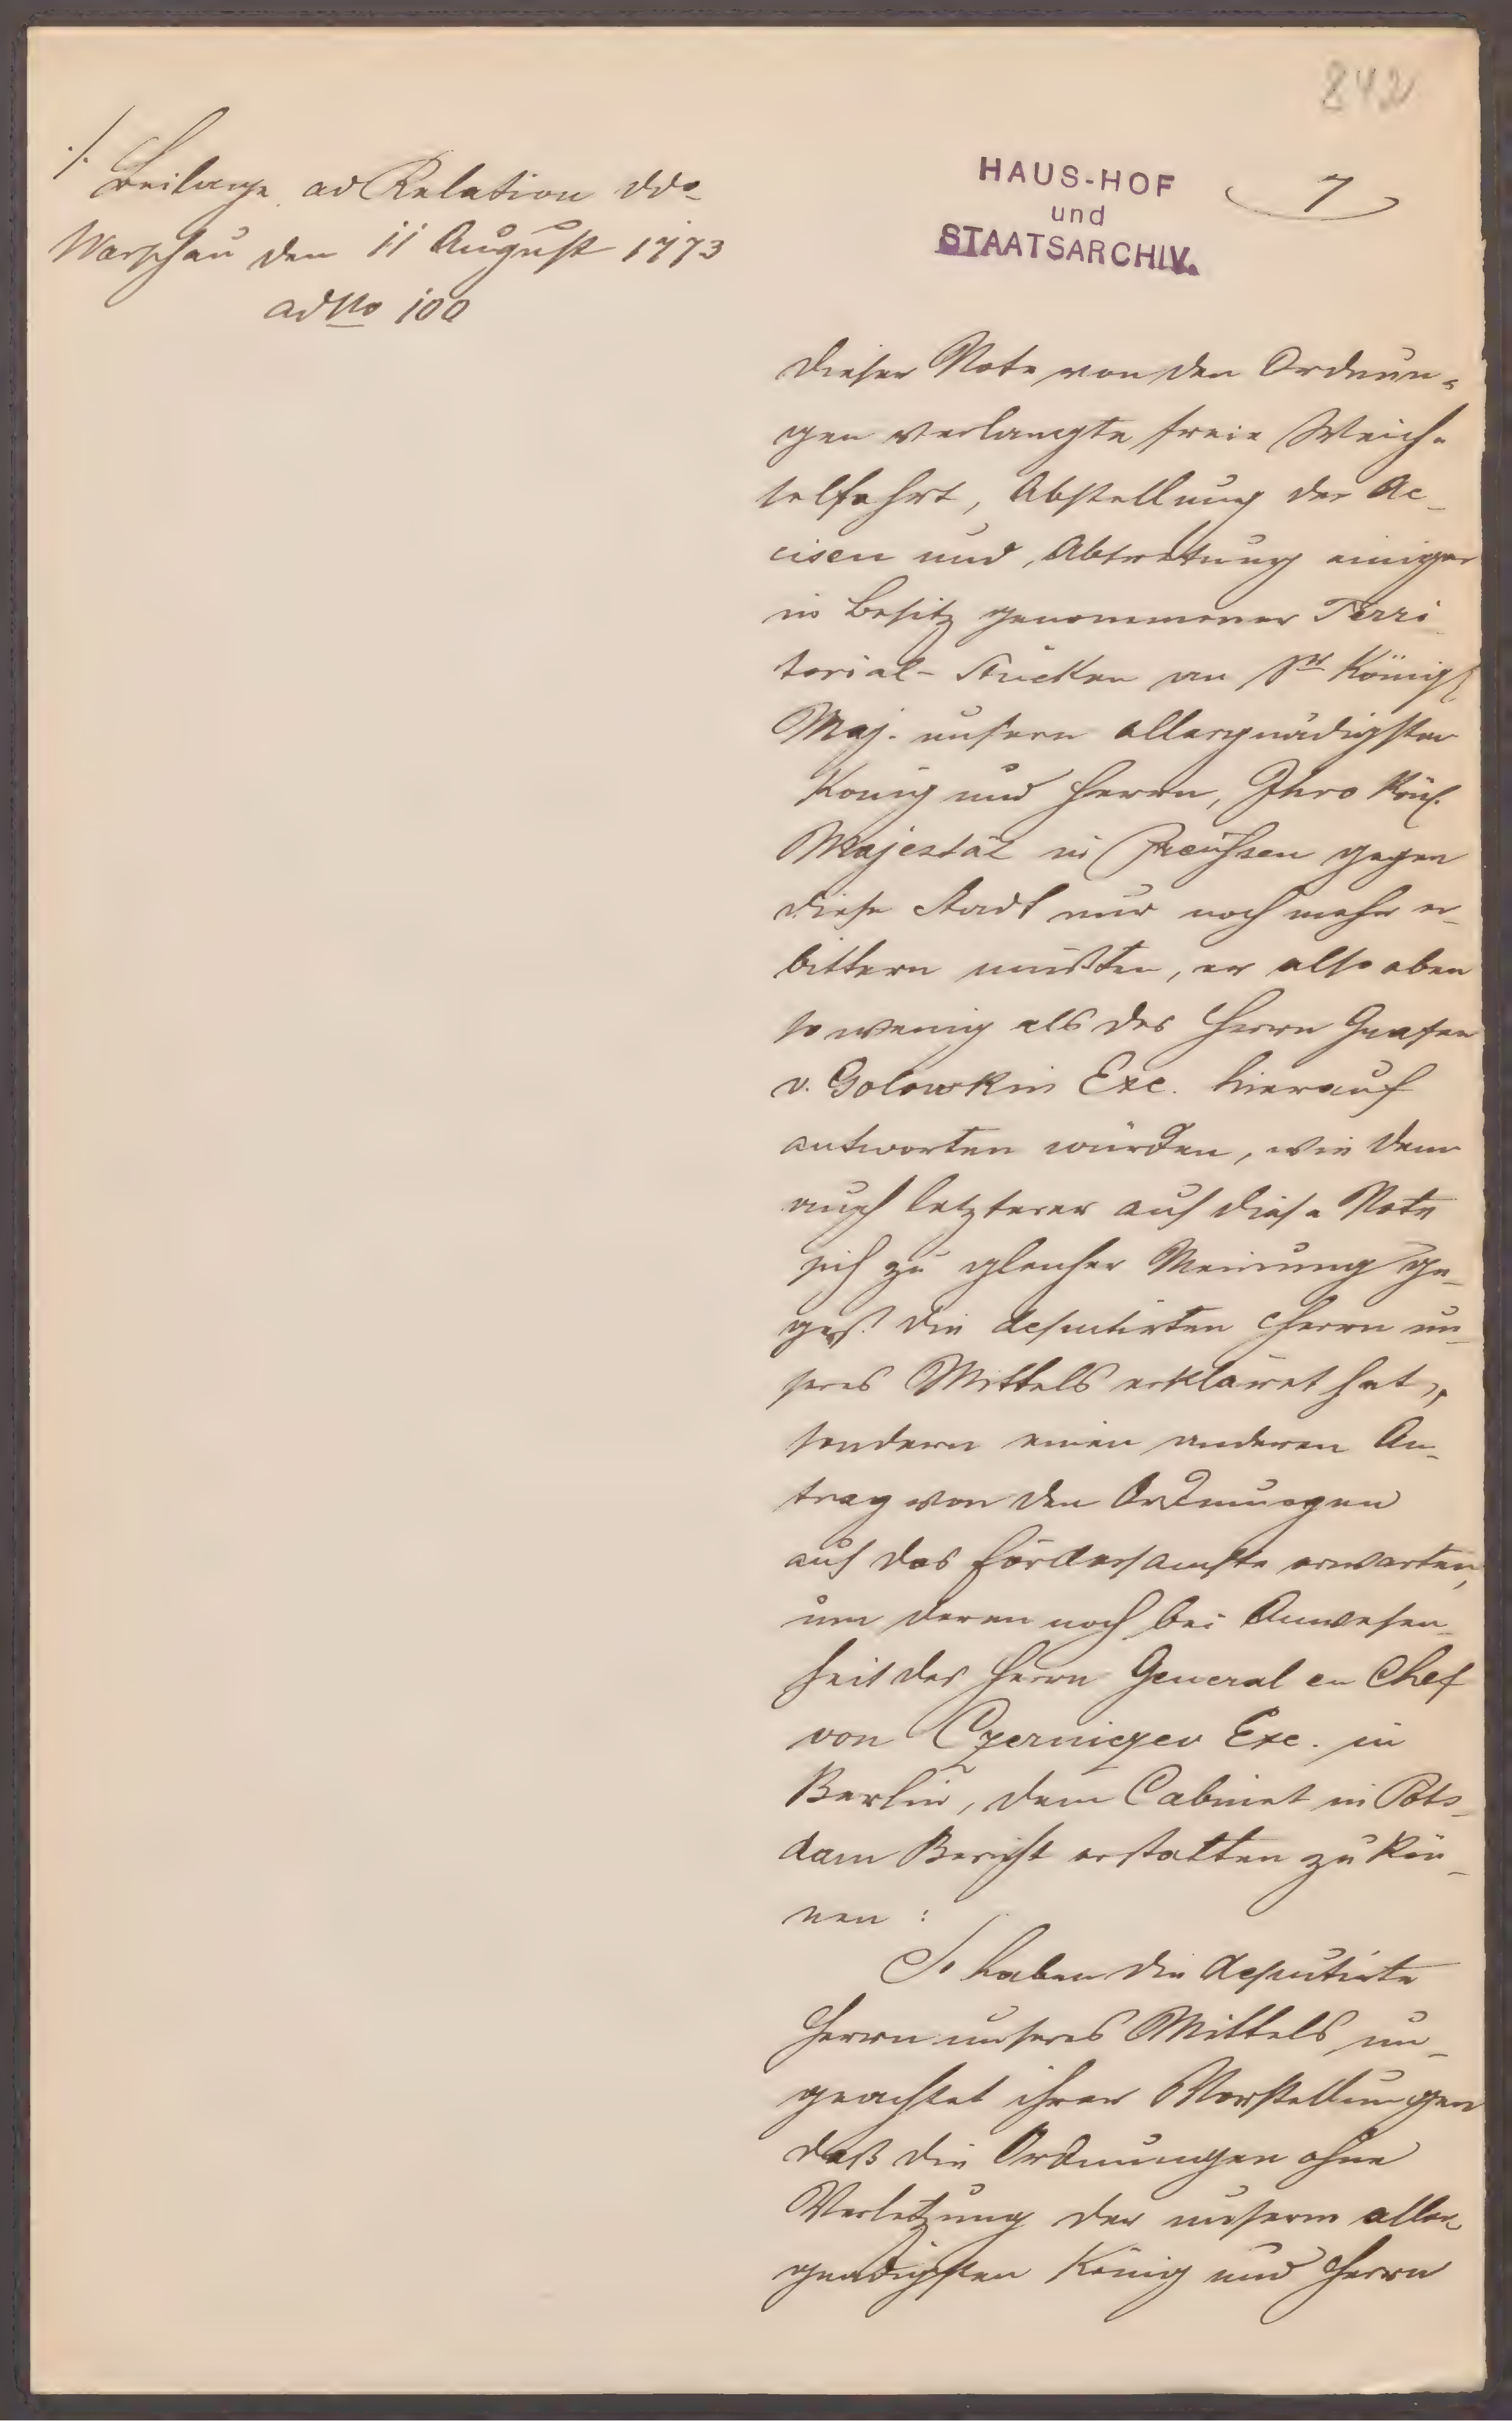 842
./.
Beilage ad Relation ddo
Warschau den 11 August 1773
ad No 100
HAUS-HOF
und
STAATSARCHIV.
7
dieser Note von den Ordnun-
gen verlangte freie Weich-
selfahrt, Abstellung der Ac-
cisen und Abtretung einiger
in Besitz genommener Terri
torial-Stücken an Sr Königl
Maj. unsern allergnädigsten
König und Herrn, Ihro Kön.
Majestät in Preußen gegen
diese Stadt nur noch mehr er-
bittern müßten, er also eben
so wenig als des Herrn Grafen
v. Golowkin Exc. hierauf
antworten würden, wie denn
auch letzterer auf diese Note
sich zu gleicher Meinung ge-
gest die deputirten Herrn un-
seres Mittels erkläret hat,
sondern einen anderen An-
trag von den Ordnungen
auf das fördersamste erwarten,
um deren noch bei Anwesen-
heit des Herrn General en Chef
von Czernigev Exc. in
Berlin, dem Cabinet in Pots-
dam Bericht erstatten zu kön-
nen :
So haben die deputirte
Herrn unseres Mittels un-
geachtet ihrer Vorstellungen
daß die Ordnungen ohne
Verletzung der unserm aller-
gnädigsten König und Herrn